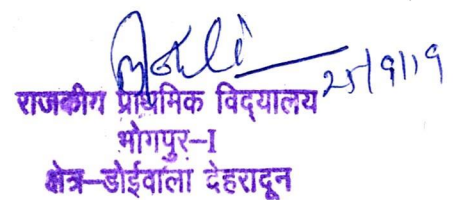 25/9/19
राजकीय प्राथमिक विद्यालय
भोगपुर-I
क्षेत्र-डोईवाला देहरादून